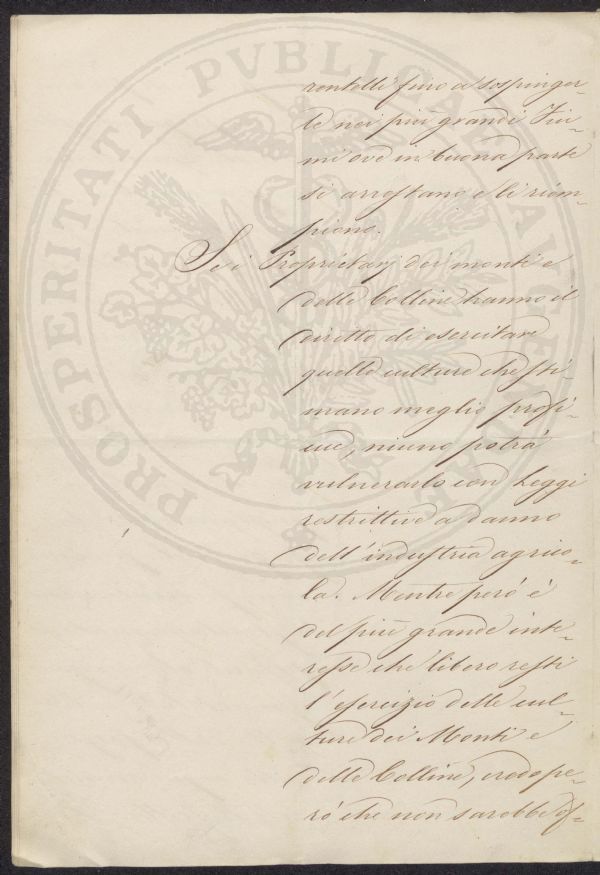 PROSPERITATI PVBLICAE AVGENDAE
rentelli fino a sospinger-
le nei più grandi Fiu-
mi ove in buona parte
si arrestano e li riem-
piono.
Se i Proprietarj dei monti e
delle Colline hanno il
diretto di esercitare
quelle culture che sti-
mano meglio profi-
cue, niuno potrà
vulnerarlo con Leggi
restrittive a danno
dell'industria agrico-
la. Mentre però è
del più grande inte-
resse che libero resti
l'esercizio delle cul-
ture dei Monti e
delle Colline, credo pe-
rò che non sarebbe of-